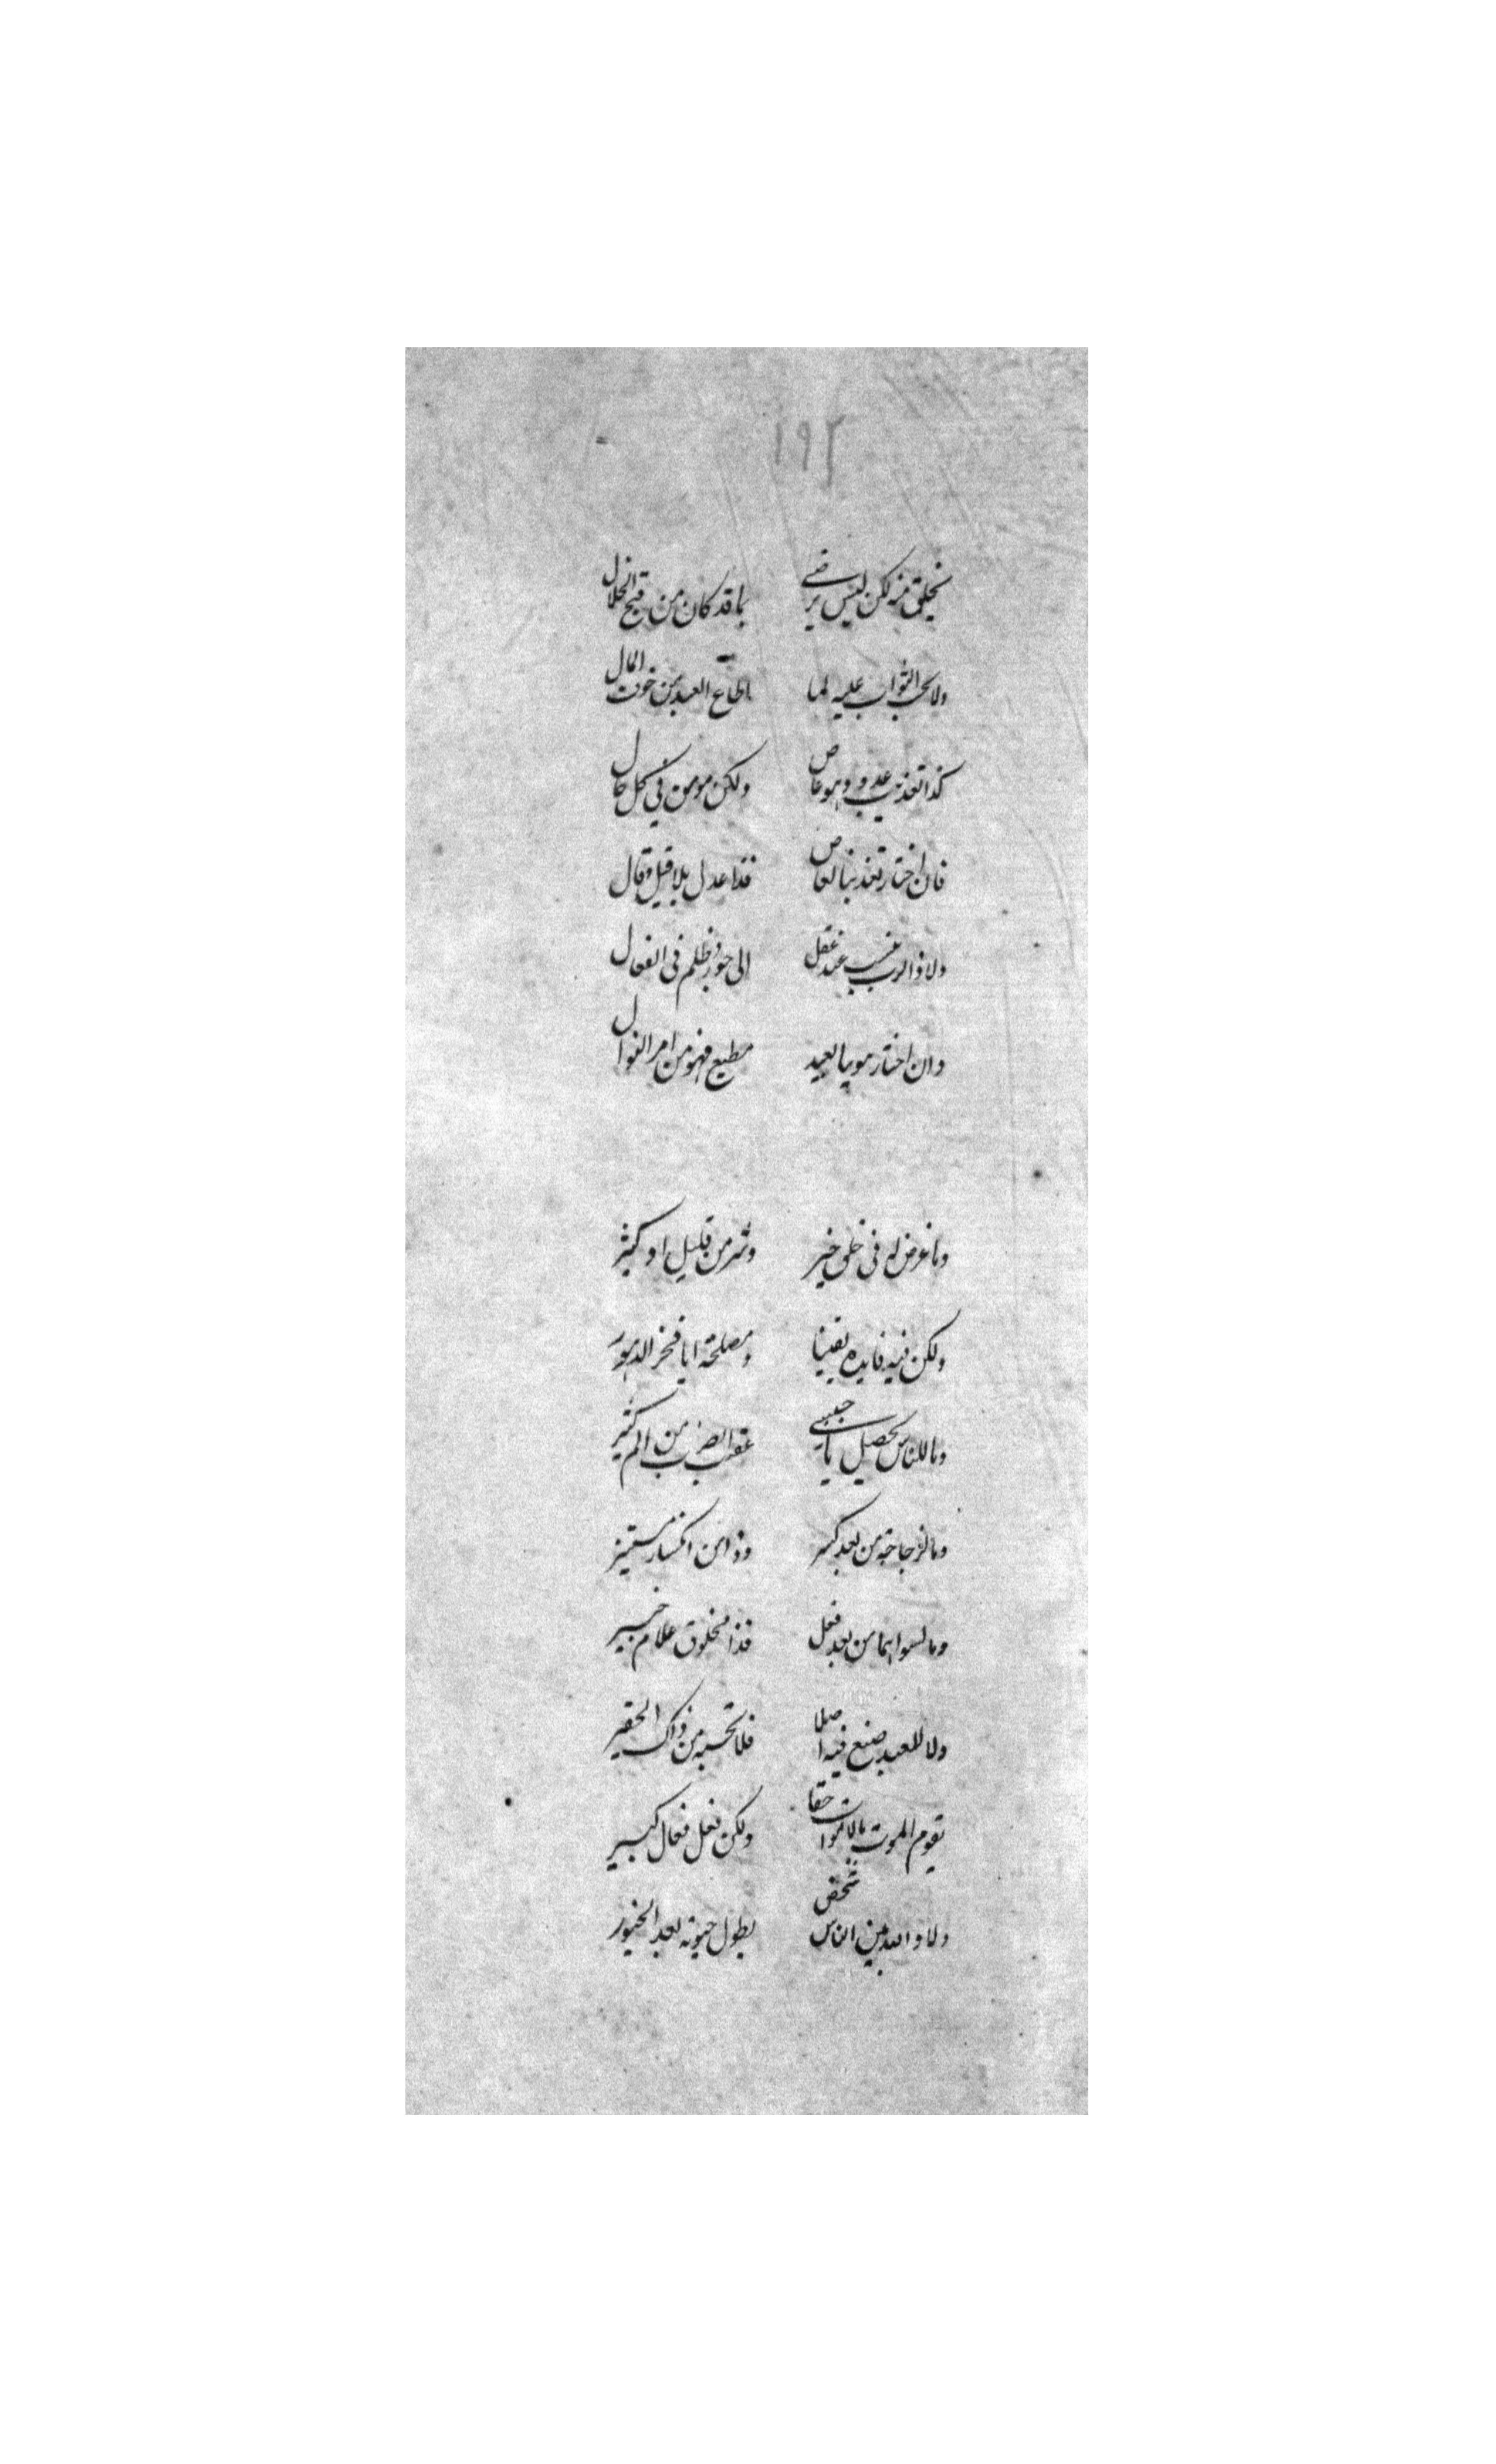 ١٩٢
يخلق منه لكن ليس يرضى بما قد كان من قبح الخلال
ولا يجب الثواب عليه لما اطاع العبد من خوف المال
كذا تعذيب عبد وهو عاص ولكن مومن في كل حال
فان اختار تعذيبا لعاص فذا عدل بلا قيل وقال
ولا ذا الرب ينسب عند عقل الى جور وظلم في الفعال
وان اختار موهبا لعبد مطيع فهو من امر النوال
وما غرض له في خلق خير وشر من قليل او كثير
ولكن فيه فايده يقينا ومصلحة ايا فخر الدهور
وما للناس تحصيل يا حبيبي عقيب الضرب من الم كثير
وما لزجاجة من بعد كسر وذا من انكسار مستنير
وما لسواهما من بعد فعل فذا مخلوق علام خبير
ولا للعبد صنع فيه اصلا فلا تحسبه من ذاك الحقير
يقوم الموت بالاموات حقا ولكن فعل فعال كبير
ولا والله بين الناس شخص يطول حيوته بعد